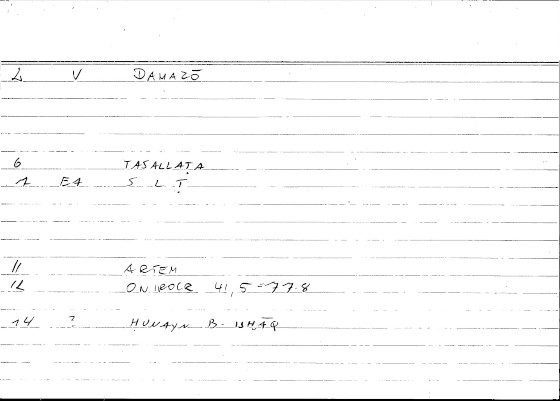 2 V DAMAZŌ
6 TASALLAṬA
1 E1 S L Ṭ
11 ARTEM
12 ONIROCR 41,5 = 77.8
14 ? ḤUNAYN B. ISḤĀQ